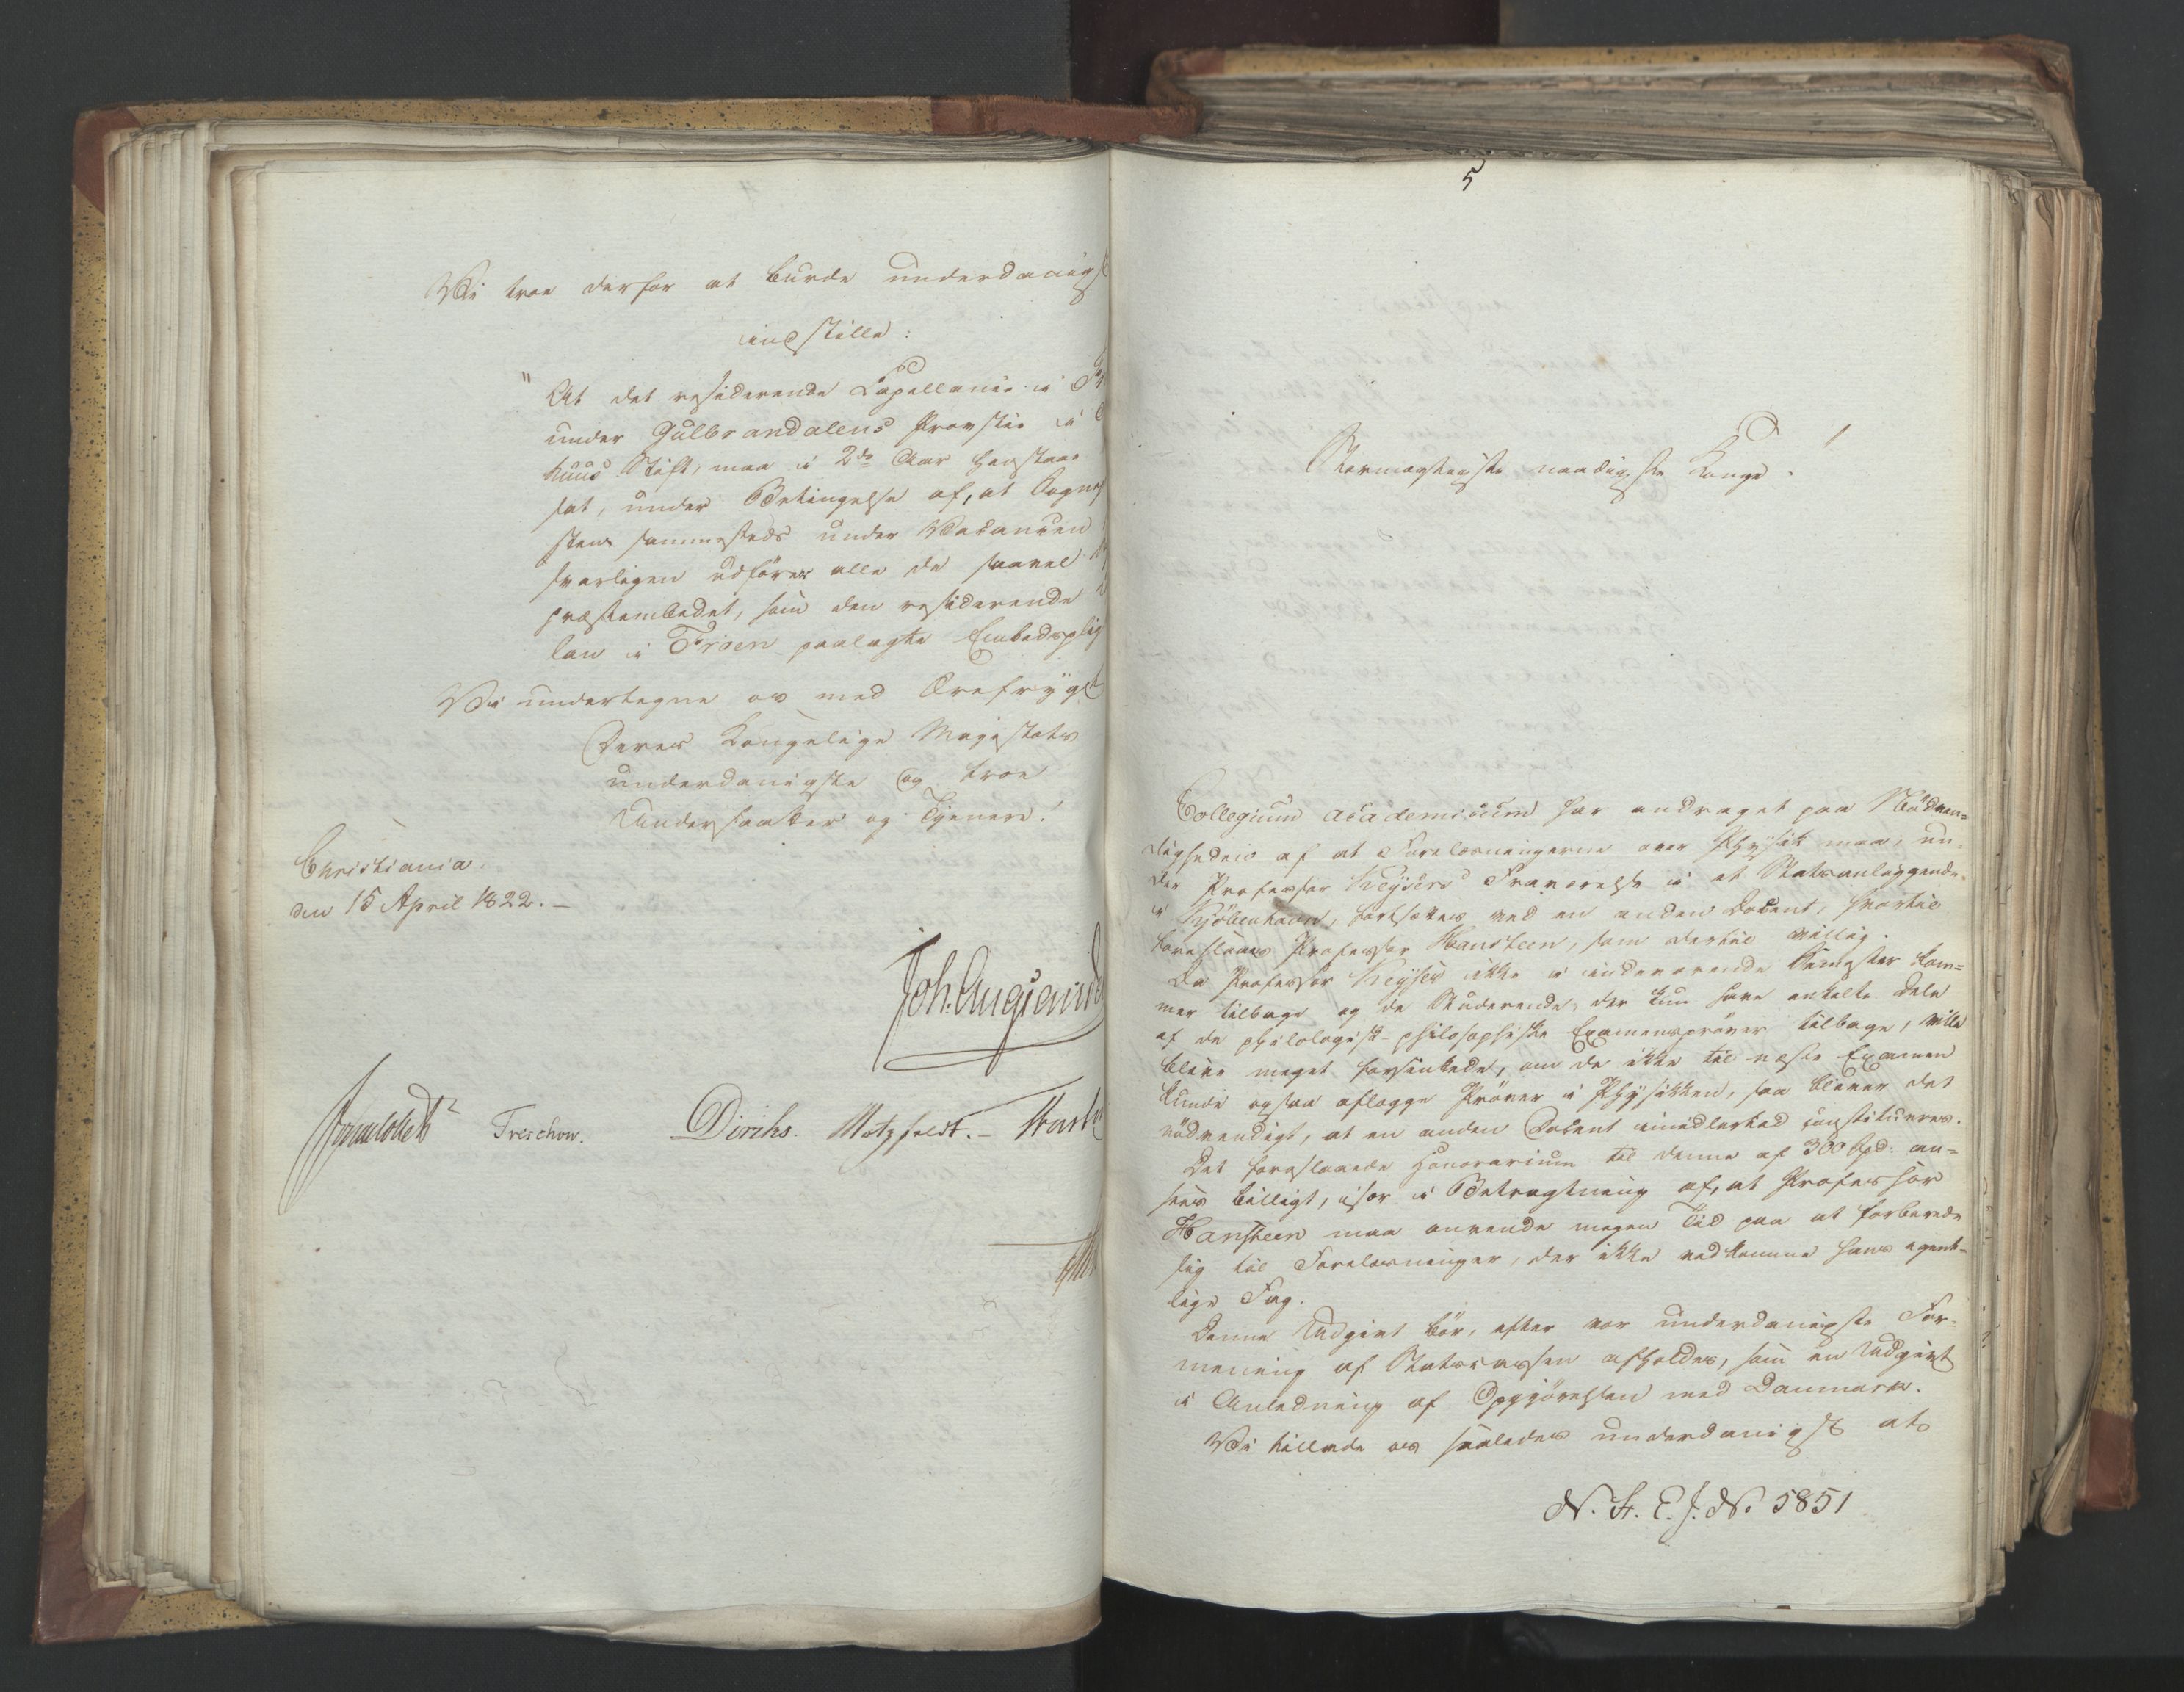 Vi troe derfor at burde underdanigst
indstille:
"At det residerende Capellanie i
under Gulbrandalens Provstie i
huus Stift, maa i 2de Aar henstaae
sat, under Betingelse af, at Sogne
sten sammesteds under Vacancen
svarligen udfører alle de saavel
præstembedet, som den residerende
lan i Froen paalagte Embedsplig
Vi undertegne os med Ærefrygt
Deres Kongelige Majestæts
underdanigste og troe
Undersaatter og Tjenere!
Christiania,
den 15 April 1822. —
Treschow. Diriks. Motzfeldt. —
5
Stormægtigste naadigste Konge!
Collegium academicum har andraget paa Nødven=
digheden af at Forelæsningerne over Physik maa, un-
der Professor Keysers Fraværelse i et Statsanliggende
i Kjöbenhavn, fortsættes ved en anden Docent, hvortil
foreslaaes Professor Hansteen, som dertil er villig.
Da Professor Keyser ikke i indeværende Semester kom=
mer tilbage og de Studerende, der kun have enkelte Dele
af de philologisk-philosophiske Examensprøver tilbage, ville
blive meget forsinkede, om de ikke til næste Examen
kunde ogsaa aflægge Prøver i Physikken, saa bliver det
nødvendigt, at en anden Docent imidlertid constitueres.
Det foreslaaede Honorarium til denne af 300 Spd. an=
sees billigt, især i Betragtning af, at Professor
Hansteen maa anvende megen Tid paa at forberede
sig til Forelæsninger, der ikke vedkomme hans egent-
lige Fag.
Denne Udgivt bør, efter vor underdanigste For-
mening af Statscassen afholdes, som en Udgivt
i Anledning af Opgjørelsen med Danmark.
Vi tillade os saaledes underdanigst at
N. St. E. J. No. 5851